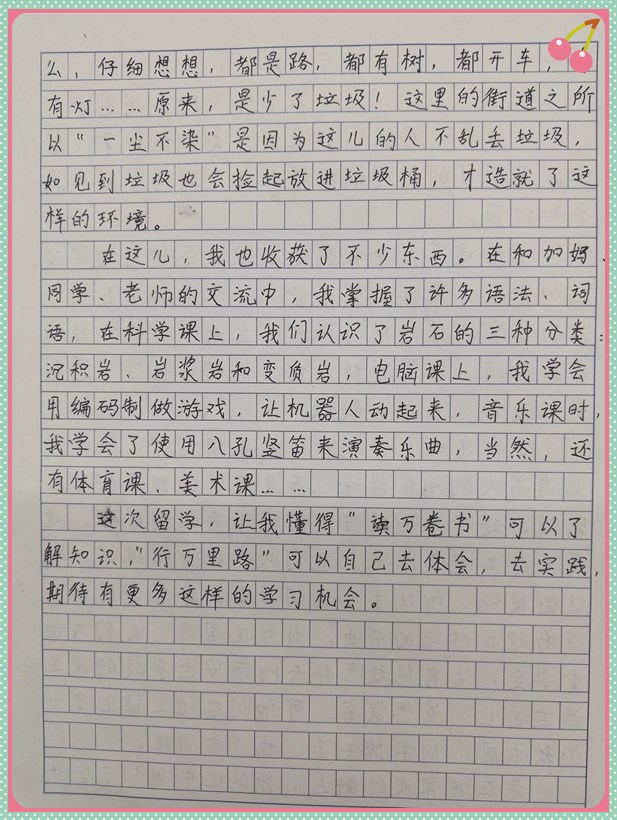 么，仔细想想，都是路，都有树，都开车，
有灯……原来，是少了垃圾！这里的街道之所
以“一尘不染”是因为这儿的人不乱丢垃圾，
如见到垃圾也会捡起放进垃圾桶，才造就了这
样的环境。
在这儿，我也收获了不少东西。在和加妈、
同学、老师的交流中，我掌握了许多语法、词
语，在科学课上，我们认识了岩石的三种分类：
沉积岩、岩浆岩和变质岩，电脑课上，我学会
用编码制做游戏，让机器人动起来，音乐课时，
我学会了使用八孔竖笛来演奏乐曲，当然，还
有体育课、美术课……
这次留学，让我懂得“读万卷书”可以了
解知识，“行万里路”可以自己去体会，去实践，
期待有更多这样的学习机会。